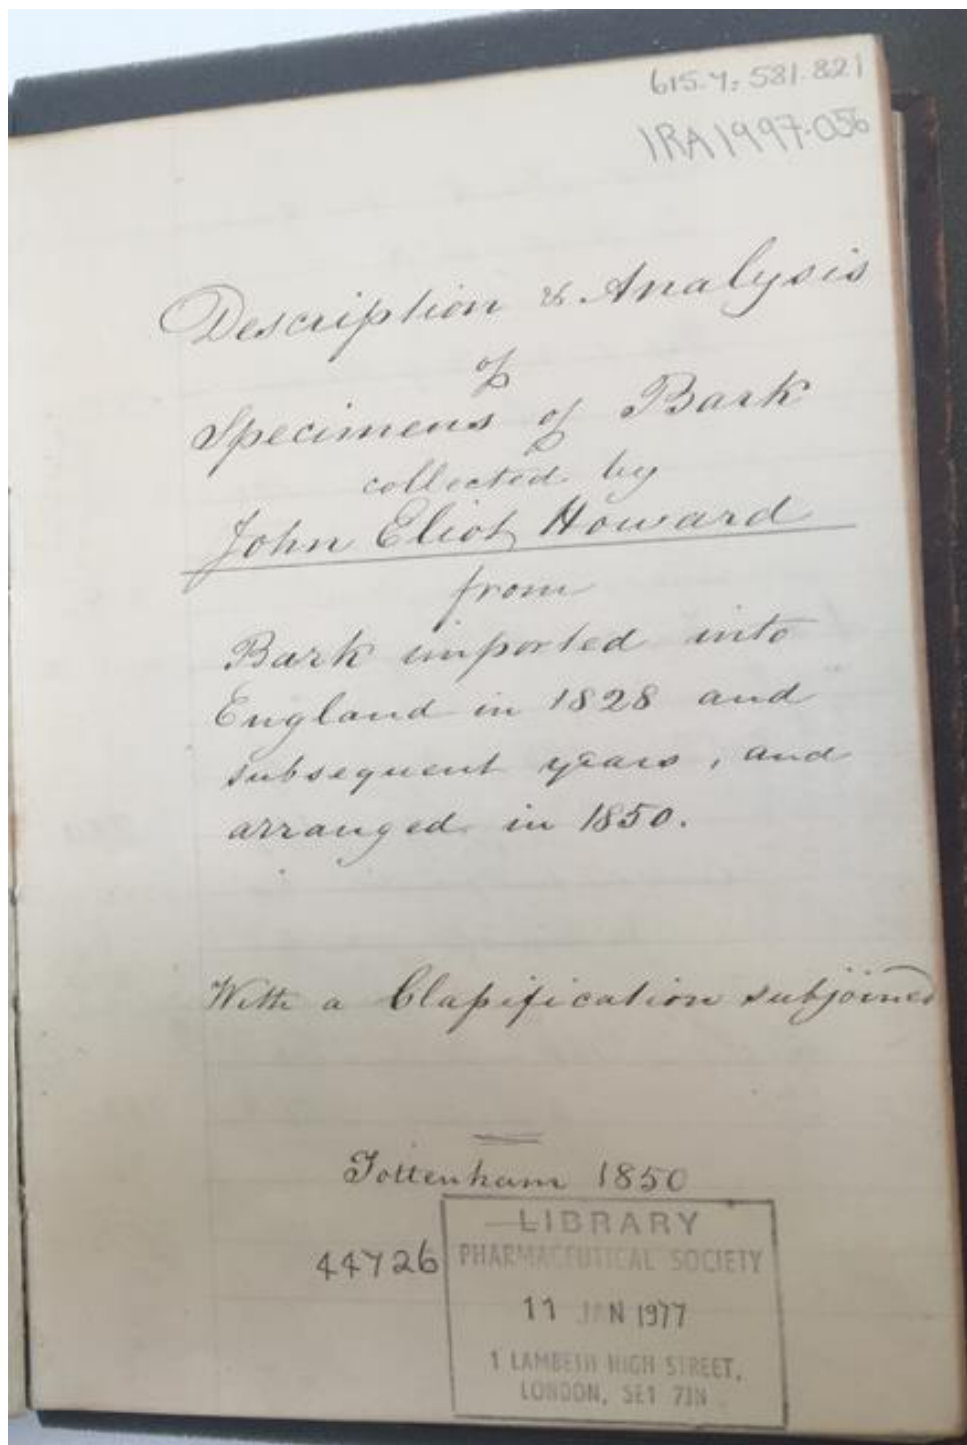 615.7:581.821
IRA1997.056
Description & Analysis
of
Specimens of Bark
collected by
John Eliot Howard
from
Bark imported into
England in 1828 and
subsequent years, and
arranged in 1850.
With a Claſsification subjoined
Tottenham 1850
44726
LIBRARY
PHARMACEUTICAL SOCIETY
11 JAN 1977
1 LAMBETH HIGH STREET,
LONDON, SE1 7JN